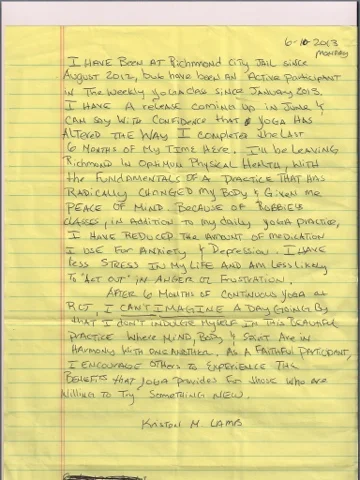 6-10-2013
MONDAY
I HAVE BEEN AT Richmond City Jail since
August 2012, but have been an Active participant
in The weekly YOGA class since JANUARY 2013.
I HAVE A release coming up in June &
CAN SAY WITH CONFIDENCE that YOGA HAS
ALTERED THE WAY I completed the last
6 MONTHS OF My TIME HERE. I'll be LEAVING
RICHMOND IN OPTIMUM PHYSICAL HEALTH, WITH
the FUNDAMENTALS OF A PRACTICE THAT HAS
RADICALLY CHANGED my BODY & Given me
PEACE OF MIND. BECAUSE OF ROBBIE'S
CLASSES, IN ADDITION TO my DAILY YOGA PRACTICE,
I HAVE REDUCED THE AMOUNT OF MEDICATION
I USE FOR ANXIETY & DEPRESSION. I HAVE
less STRESS IN MY LIFE AND AM LESS LIKELY
TO "ACT OUT" IN ANGER OR FRUSTRATION.
AFTER 6 MONTHS OF CONTINUOUS YOGA at
RCJ, I CAN'T IMAGINE A DAY GOING BY
that I DON'T INDULGE MYSELF IN THIS BEAUTIFUL
PRACTICE WHERE MIND, BODY & SPIRIT ARE IN
HARMONY WITH ONE ANOTHER. AS A FAITHFUL PARTICIPANT,
I ENCOURAGE OTHERS TO EXPERIENCE THE
BENEFITS that YOGA PROVIDES FOR THOSE WHO ARE
WILLING TO TRY SOMETHING NEW.
KRISTON M. LAMB